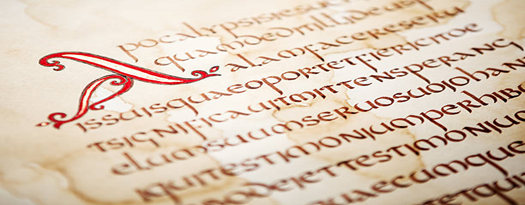 Apocalypsisies
quamdeditilldeusp
alamfacereseru
issuisquaeoportetfiericitoe
tsignificauitmittensperang
elumsuumseruosuoiohan
iquitestimoniumperhibu
ettestimoniu
aecumque